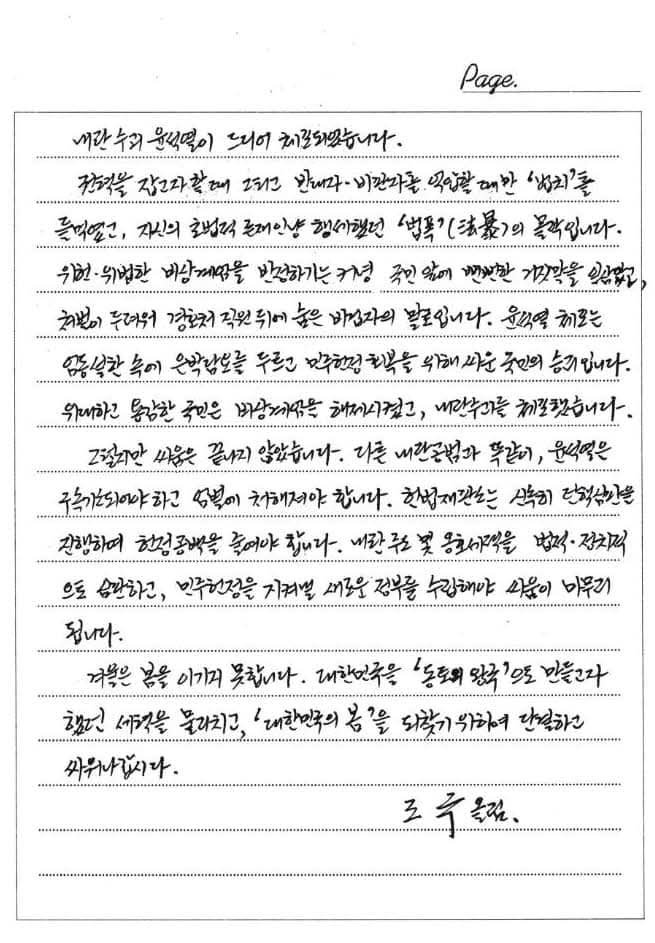 Page.
내란 수괴 윤석열이 드디어 체포되었습니다.
권력을 잡고자 할 때 그리고 반대자·비판자를 억압할 때만 '법치'를
들먹였고, 자신의 초법적 존재인양 행세했던 '법폭'(法暴)의 몰락입니다.
위헌·위법한 비상계엄을 반성하기는 커녕 국민 앞에 뻔뻔한 거짓말을 일삼았고,
처벌이 두려워 경호처 직원 뒤에 숨은 비겁자의 말로입니다. 윤석열 체포는
엄동설한 속에 은박담요를 두르고 민주헌정 회복을 위해 싸운 국민의 승리입니다.
위대하고 용감한 국민은 비상계엄을 해제시켰고, 내란수괴를 체포했습니다.
그렇지만 싸움은 끝나지 않았습니다. 다른 내란공범과 똑같이, 윤석열은
구속기소되어야 하고 엄벌에 처해져야 합니다. 헌법재판소는 신속히 탄핵심판을
진행하여 헌정공백을 줄여야 합니다. 내란 주도 및 옹호세력을 법적·정치적
으로 심판하고, 민주헌정을 지켜낼 새로운 정부를 수립해야 싸움이 마무리
됩니다.
겨울은 봄을 이기지 못합니다. 대한민국을 '동토의 왕국'으로 만들고자
했던 세력을 물리치고, '대한민국의 봄'을 되찾기 위하여 단결하고
싸워나갑시다.
조 국 올림.